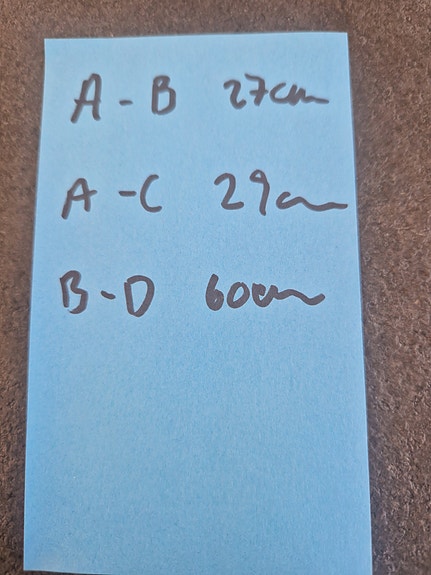 A - B 27cm
A - C 29cm
B - D 60cm